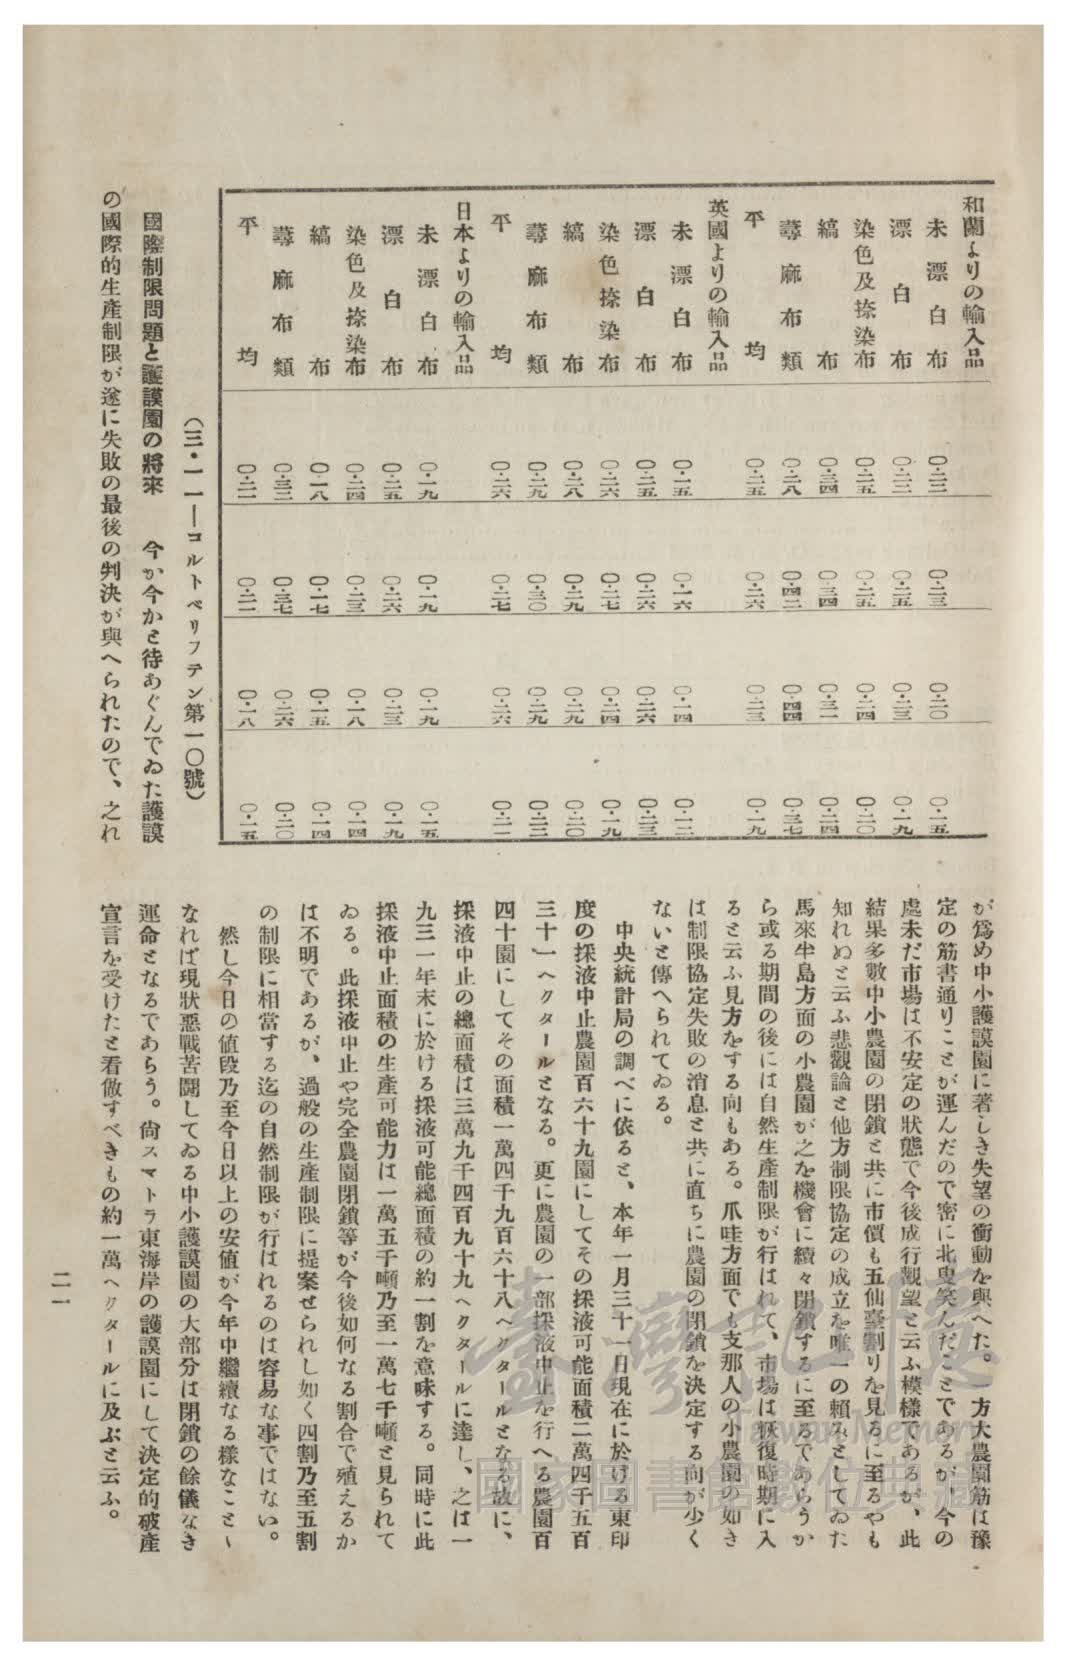 和蘭よりの輸入品
未漂白布 〇・二二 〇・二三 〇・二〇 〇・一五
漂白布 〇・二二 〇・二五 〇・二三 〇・一九
染色及捺染布 〇・二五 〇・二五 〇・二四 〇・二〇
縞布 〇・三四 〇・三四 〇・三一 〇・二四
蕁麻布類 〇・二八 〇・四二 〇・四四 〇・三七
平均 〇・二五 〇・二六 〇・二三 〇・一九
英國よりの輸入品
未漂白布 〇・一五 〇・一六 〇・一四 〇・一二
漂白布 〇・二五 〇・二六 〇・二六 〇・二三
染色捺染布 〇・二六 〇・二七 〇・二四 〇・一九
縞布 〇・二八 〇・二九 〇・二九 〇・二〇
蕁麻布類 〇・二九 〇・三〇 〇・二九 〇・二二
平均 〇・二六 〇・二七 〇・二六 〇・二一
日本よりの輸入品
未漂白布 〇・一九 〇・一九 〇・一九 〇・一五
漂白布 〇・二五 〇・二六 〇・二三 〇・一九
染色及捺染布 〇・二四 〇・二三 〇・一八 〇・一四
縞布 〇・一八 〇・一七 〇・一五 〇・一四
蕁麻布類 〇・三二 〇・三七 〇・二六 〇・二〇
平均 〇・二一 〇・二一 〇・一八 〇・一五
（三・一一―コルトベリフテン第一〇號）
國際制限問題と護謨園の將來　今か今かと待あぐんでゐた護謨
の國際的生產制限が遂に失敗の最後の判決が與へられたので、之れ
が爲め中小護謨園に著しき失望の衝動を與へた。一方大農園筋は豫
定の筋書通りことが運んだので密に北叟笑んだことであるが、今の
處未だ市場は不安定の狀態で今後成行觀望と云ふ模樣であるが、此
結果多數中小農園の閉鎖と共に市價も五仙臺割りを見るに至るやも
知れぬと云ふ悲觀論と他方制限協定の成立を唯一の賴みとしてゐた
馬來半島方面の小農園が之を機會に續々閉鎖するに至るであらうか
ら或る期間の後には自然生產制限が行はれて、市場は恢復時期に入
ると云ふ見方をする向もある。爪哇方面でも支那人の小農園の如き
は制限協定失敗の消息と共に直ちに農園の閉鎖を決定する向が少く
ないと傳へられてゐる。
中央統計局の調べに依ると、本年一月三十一日現在に於ける東印
度の採液中止農園百六十九園にしてその採液可能面積二萬四千五百
三十一ヘクタールとなる。更に農園の一部採液中止を行へる農園百
四十園にしてその面積一萬四千九百六十八ヘクタールとなる故に、
採液中止の總面積は三萬九千四百九十九ヘクタールに達し、之は一
九三一年末に於ける採液可能總面積の約一割を意味する。同時に此
採液中止面積の生產可能力は一萬五千噸乃至一萬七千噸と見られて
ゐる。此採液中止や完全農園閉鎖等が今後如何なる割合で殖えるか
は不明であるが、過般の生產制限に提案せられし如く四割乃至五割
の制限に相當する迄の自然制限が行はれるのは容易な事ではない。
然し今日の値段乃至今日以上の安値が今年中繼續なる樣なことゝ
なれば現狀惡戰苦鬪してゐる中小護謨園の大部分は閉鎖の餘儀なき
運命となるであらう。尙スマトラ東海岸の護謨園にして決定的破產
宣言を受けたと看做すべきもの約一萬ヘクタールに及ぶと云ふ。
二一
臺灣記憶
Taiwan Memory
國家圖書館數位典藏